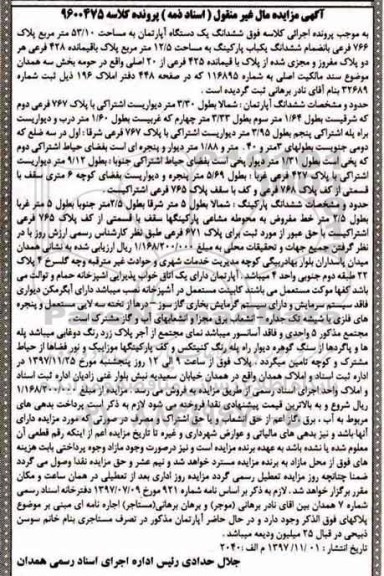 آگهی مزایده مال غیر منقول ( اسناد ذمه ) پرونده کلاسه ۹۶۰۰۴۷۵
به موجب پرونده اجرائی کلاسه فوق ششدانگ یک دستگاه آپارتمان به مساحت ۵۳/۱۰ متر مربع پلاک
۷۶۶ فرعی بانضمام ششدانگ یکباب پارکینگ به مساحت ۱۲/۵ متر مربع پلاک باقیمانده ۴۲۸ فرعی هر
دو پلاک مفروز و مجزی شده از پلاک با قیمانده ۴۲۵ فرعی از ۲۰ اصلی واقع در حومه بخش سه همدان
موضوع سند مالکیت اصلی به شماره ۱۱۶۸۹۵ که در صفحه ۴۴۸ دفتر املاک ۱۹۶ ذیل ثبت شماره
۳۲۶۸۹ بنام آقای نادر برهانی ثبت گردیده است .
حدود و مشخصات ششدانگ آپارتمان : شمالا بطول ۳/۳۰ متر دیواریست اشتراکی با پلاک ۷۶۷ فرعی دوم
که شرقیست بطول ۱/۶۴ متر سوم بطول ۳/۳۳ متر چهارم که غربیست بطول ۱/۶۰ متر درب و دیواریست
براه پله اشتراکی پنجم بطول ۳/۹۵ متر دیواریست اشتراکی با پلاک ۷۶۷ فرعی شرقا : اول در سه ضلع که
دومی جنوبیست بطولهای ۳متر و ۴۰. متر و ۱/۸۸ متر دیوار و پنجره ای است بفضای حیاط اشتراکی دوم
که پخی است بطول ۱/۳۱ متر دیواریست بفضای حیاط اشتراکی جنوبا : بطول ۹/۱۲ متر دیواریست
اشتراکی با پلاک ۴۲۷ فرعی غربا : بطول ۵/۶۹ متر پنجره و دیواریست بفضای کوچه ۶ متری سقف با
قسمتی از کف پلاک ۷۶۸ فرعی و کف با سقف پلاک ۷۶۵ فرعی اشتراکیست .
حدود و مشخصات ششدانگ پارکینگ : شمالا بطول ۵ متر شرقا بطول ۲/۵متر جنوبا بطول ۵ متر غربا
بطول ۲/۵ متر خط مفروض به محوطه مشاعی پارکینگها سقف با قسمتی از کف پلاک ۷۶۵ فرعی
اشتراکی با حق عبور از مورد ثبت برای پلاک ۶۷۱ فرعی طبق نظر کارشناس رسمی ارزش روز با در
نظر گرفتن جمیع جهات و تحقیقات محلی به مبلغ ۱/۱۶۸/۲۰۰/۰۰۰ ریال ارزیابی شده به نشانی همدان
میدان پاسداران بلوار بهادربیگی کوچه مدیریت خدمات شهری و حوادث غیر مترقبه وچه گلسرخ ۴ پلاک
۲۲ طبقه دوم جنوبی واحد ۴ میباشد . آپارتمان دارای یک اتاق خواب پذیرایی اشپزخانه حمام و توالت می
باشد کفها موکت مستعمل می باشد کابینت مستعمل در آشپزخانه نصب میباشد دارای آبگرمکن دیواری
فاقد سیستم سرمایش و دارای سیستم گرمایش بخاری گاز سوز – درها از تخته سه لایی مستعمل و پنجره
های فلزی با شیشه تک جداره – انشعاب برق مجزا و انشعابهای آب و گاز مشترک است .
مجتمع مذکور ۵ واحدی و فاقد آسانسور میباشد نمای مجتمع از آجر پلاک زرد رنگ دوغابی میباشد پله
ها و پاگردها از سنگ گوهره دیوار راه پله رنگ کنیتکس و کف پارکینگها موزاییک و نور فضاها از حیاط
مشترک و کوچه تامین میگردد . پلاک فوق از ساعت ۹ الی ۱۲ روز پنجشنبه مورخ ۱۳۹۷/۱۱/۲۵ در
اداره ثبت اسناد و املاک همدان واقع در همدان خیابان سعیدیه نبش بلوار غنی زادیان اداره ثبت اسناد
و املاک واحد اجرای اسناد رسمی از طریق مزایده به فروش می رسد. مزایده از مبلغ ۱/۱۶۸/۲۰۰/۰۰۰
ریال شروع و به بالاترین قیمت پیشنهادی نقدا فروخته می شود لازم به ذکر است پرداخت بدهی های
مربوط به آب ، برق ، گاز اعم از حق انشعاب و یا حق اشتراک و مصرف در صورتی که مورد مزایده دارای
آنها باشد و نیز بدهی های مالیاتی و عوارض شهرداری و غیره تا تاریخ مزایده اعم از اینکه رقم قطعی آن
معلوم شده یا نشده باشد به عهده برنده مزایده است و نیز درصورت وجود مازاد وجوه پرداختی بابت هزینه
های فوق از محل مازاد به برنده مزایده مسترد خواهد شد و نیم عشر و حق مزایده نقدا وصول می گردد
ضمنا چنانچه روز مزایده تعطیل رسمی گردد مزایده روز اداری بعد از تعطیلی در همان ساعت و مکان
مقرر برگزار خواهد شد. لازم به ذکر بر اساس نامه شماره ۹۲۱ مورخ ۱۳۹۷/۰۷/۰۹ دفترخانه اسناد رسمی
شماره ۷ همدان بین آقای نادر برهانی (موجر) و برهان برهانی(مستاجر) اجاره نامه ای مبنی بر موضوع
پلاکهای فوق الذکر وجود دارد و در حال حاضر آپارتمان مذکور در تصرف مستاجری بنام خانم سوسن
ذبیحی در قبال ۲۵ میلیون ودیعه میباشد .
تاریخ انتشار : ۱۳۹۷/۱۱/۰۱ م الف :۲۰۴۰
جلال حدادی رئیس اداره اجرای اسناد رسمی همدان